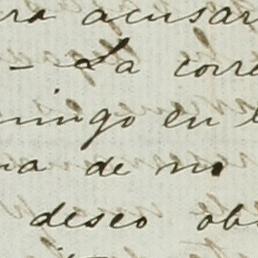 ra acusar
- La corre
mingo en l
na de no
deseo ob